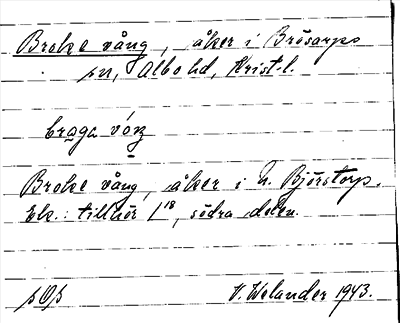 Broke vång, åker i Brösarps
sn, Albo hd, Krist. l.
braga vɔŋ
Broke vång, åker i n. Björstorp.
Ek.: tillhör 1¹⁸, södra delen.
V. Welander 1943.